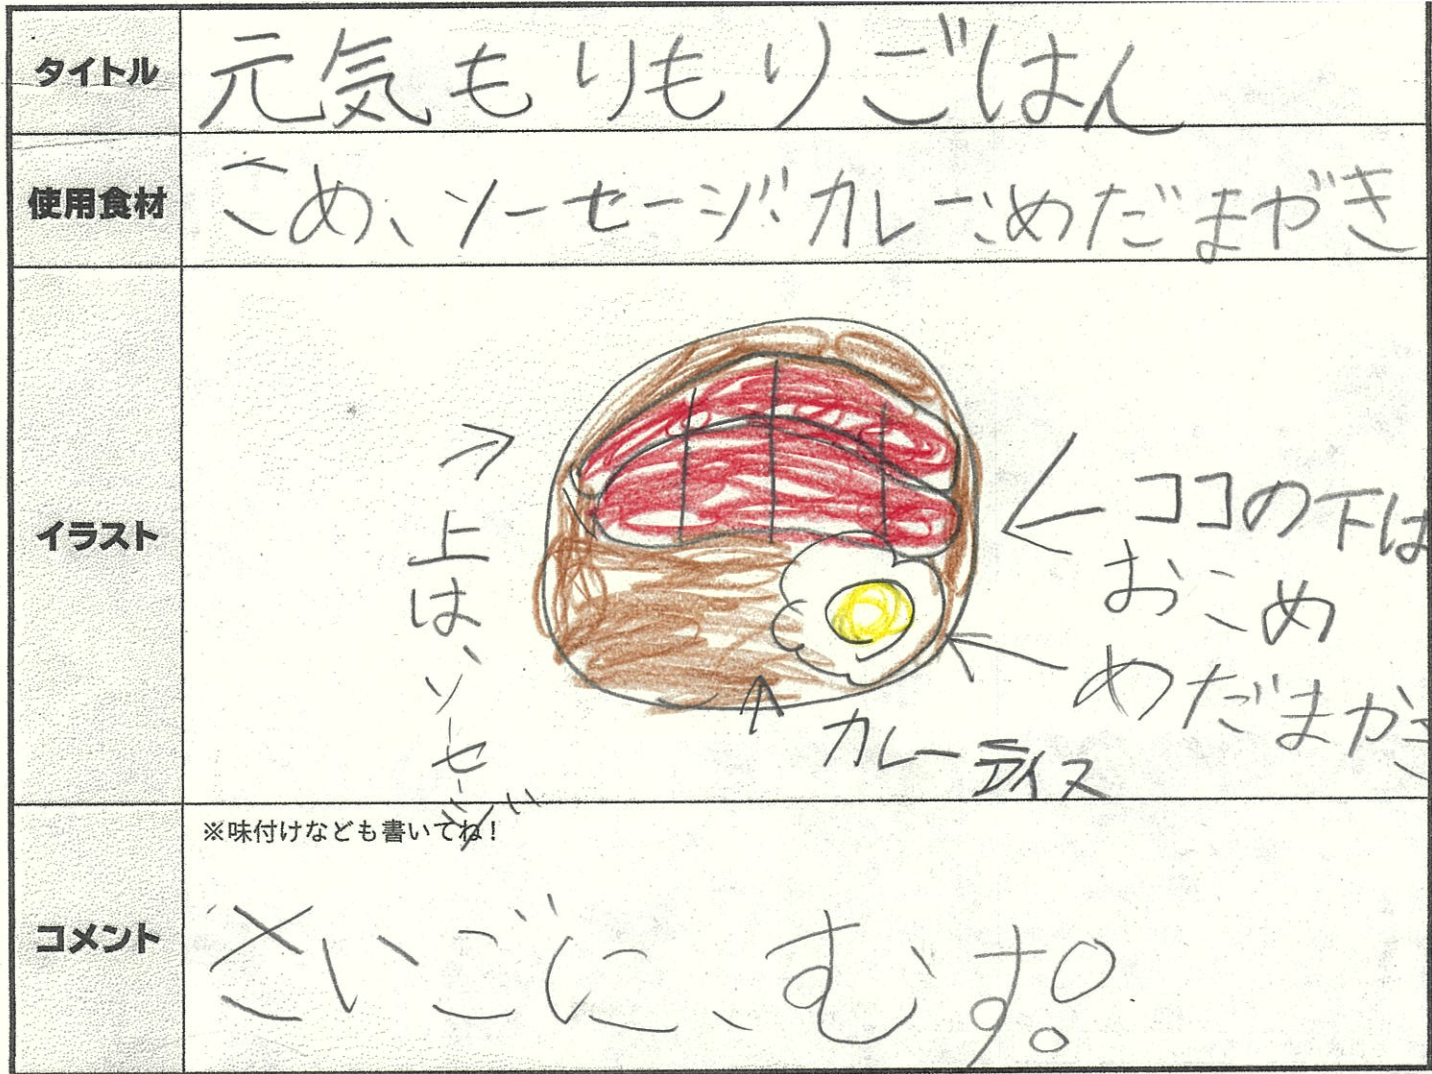 タイトル
元気もりもりごはん
使用食材
こめ、ソーセージ、カレー、めだまやき
イラスト
上は、ソーセージ
ココの下は
おこめ
めだまやき
カレーライス
コメント
※味付けなども書いてね！
さいごに、むす。